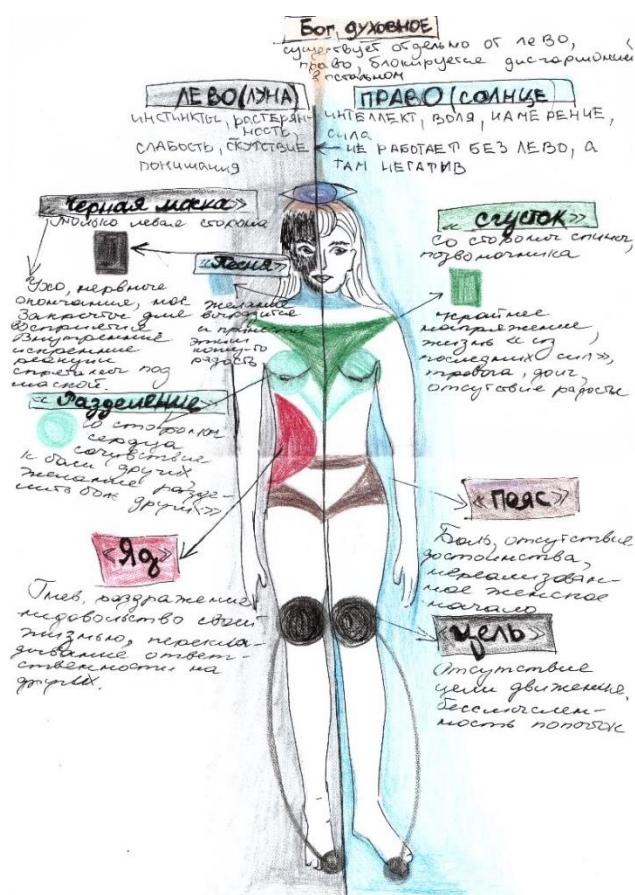 Бог, духовное
существует отдельно от лево,
право, блокируется дисгармонией
в остальном
ЛЕВО (ЛУНА)
ИНСТИНКТЫ, РАСТЕРЯН-
НОСТЬ,
СЛАБОСТЬ, ОТСУТСТВИЕ
ПОНИМАНИЯ
ПРАВО (СОЛНЦЕ
ИНТЕЛЛЕКТ, ВОЛЯ, НАМЕРЕНИЕ,
СИЛА
НЕ РАБОТАЕТ БЕЗ ЛЕВО, А
ТАМ НЕГАТИВ
«Черная маска»
только левая сторона
Ухо, нервные
окончания, нос
Закрытое для
восприятия
Внутренние
искренние
реакции
спрятались под
маской.
«Песня»
желание
выразиться
и принести
этим
кому-то
радость
«Сгусток»
со стороны спины,
позвоночника
Крайнее
напряжение
жизнь «из
последних сил»,
тревога, долг,
отсутствие радости
«Разделение»
со стороны
сердца
сочувствие
к боли других
желание разде-
лить боль других»
«Яд»
Гнев, раздражение,
недовольство своей
жизнью, перекла-
дывание ответ-
ственности на
других.
«Пояс»
Боль, отсутствие
достоинства,
нереализован-
ное женское
начало
«Цель»
Отсутствие
цели движения,
бессмыслен-
ность попыток